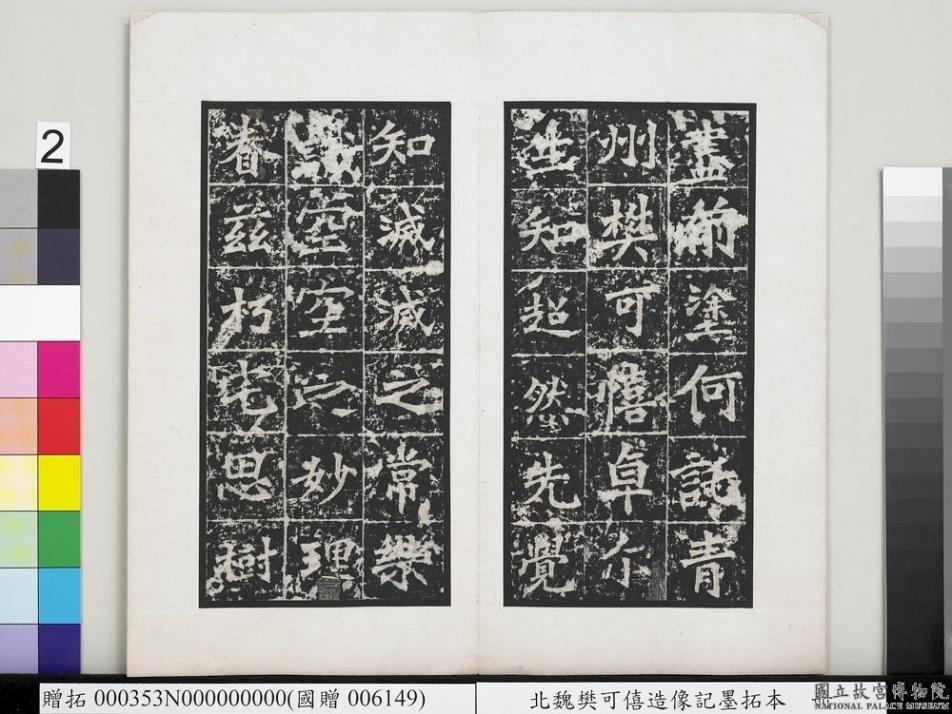 盡前塗何託青
州樊可憘卓尒
生知超然先覺
知滅滅之常樂
識空空之妙理
眷茲朽宅思樹
2
贈拓 000353N000000000(國贈 006149)
北魏樊可僖造像記墨拓本
國立故宮博物院
NATIONAL PALACE MUSEUM